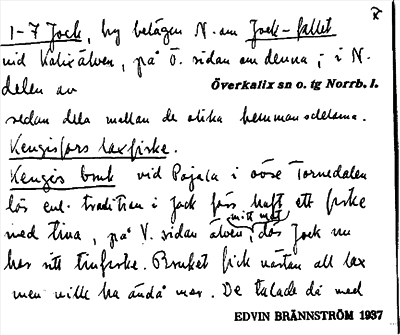 1-7 Jock, by belägen N. om Jock-fallet
vid Kalixälven, på Ö. sidan om denna; i N.
delen av
Överkalix sn o. tg Norrb. l.
sedan dela mellan de olika hemmansdelarna.
Kengisfors laxfiske.
Kengis bruk vid Pajala i övre Tornedalen
lös enl. tradition i Jock förs haft ett fiske
med tina, på V. sidan älven, mitt mot
där Jock nu
har sitt tinfiske. Bruket fick nästan all lax
men ville ha ändå mer. De talade då med
EDVIN BRÄNNSTRÖM 1937